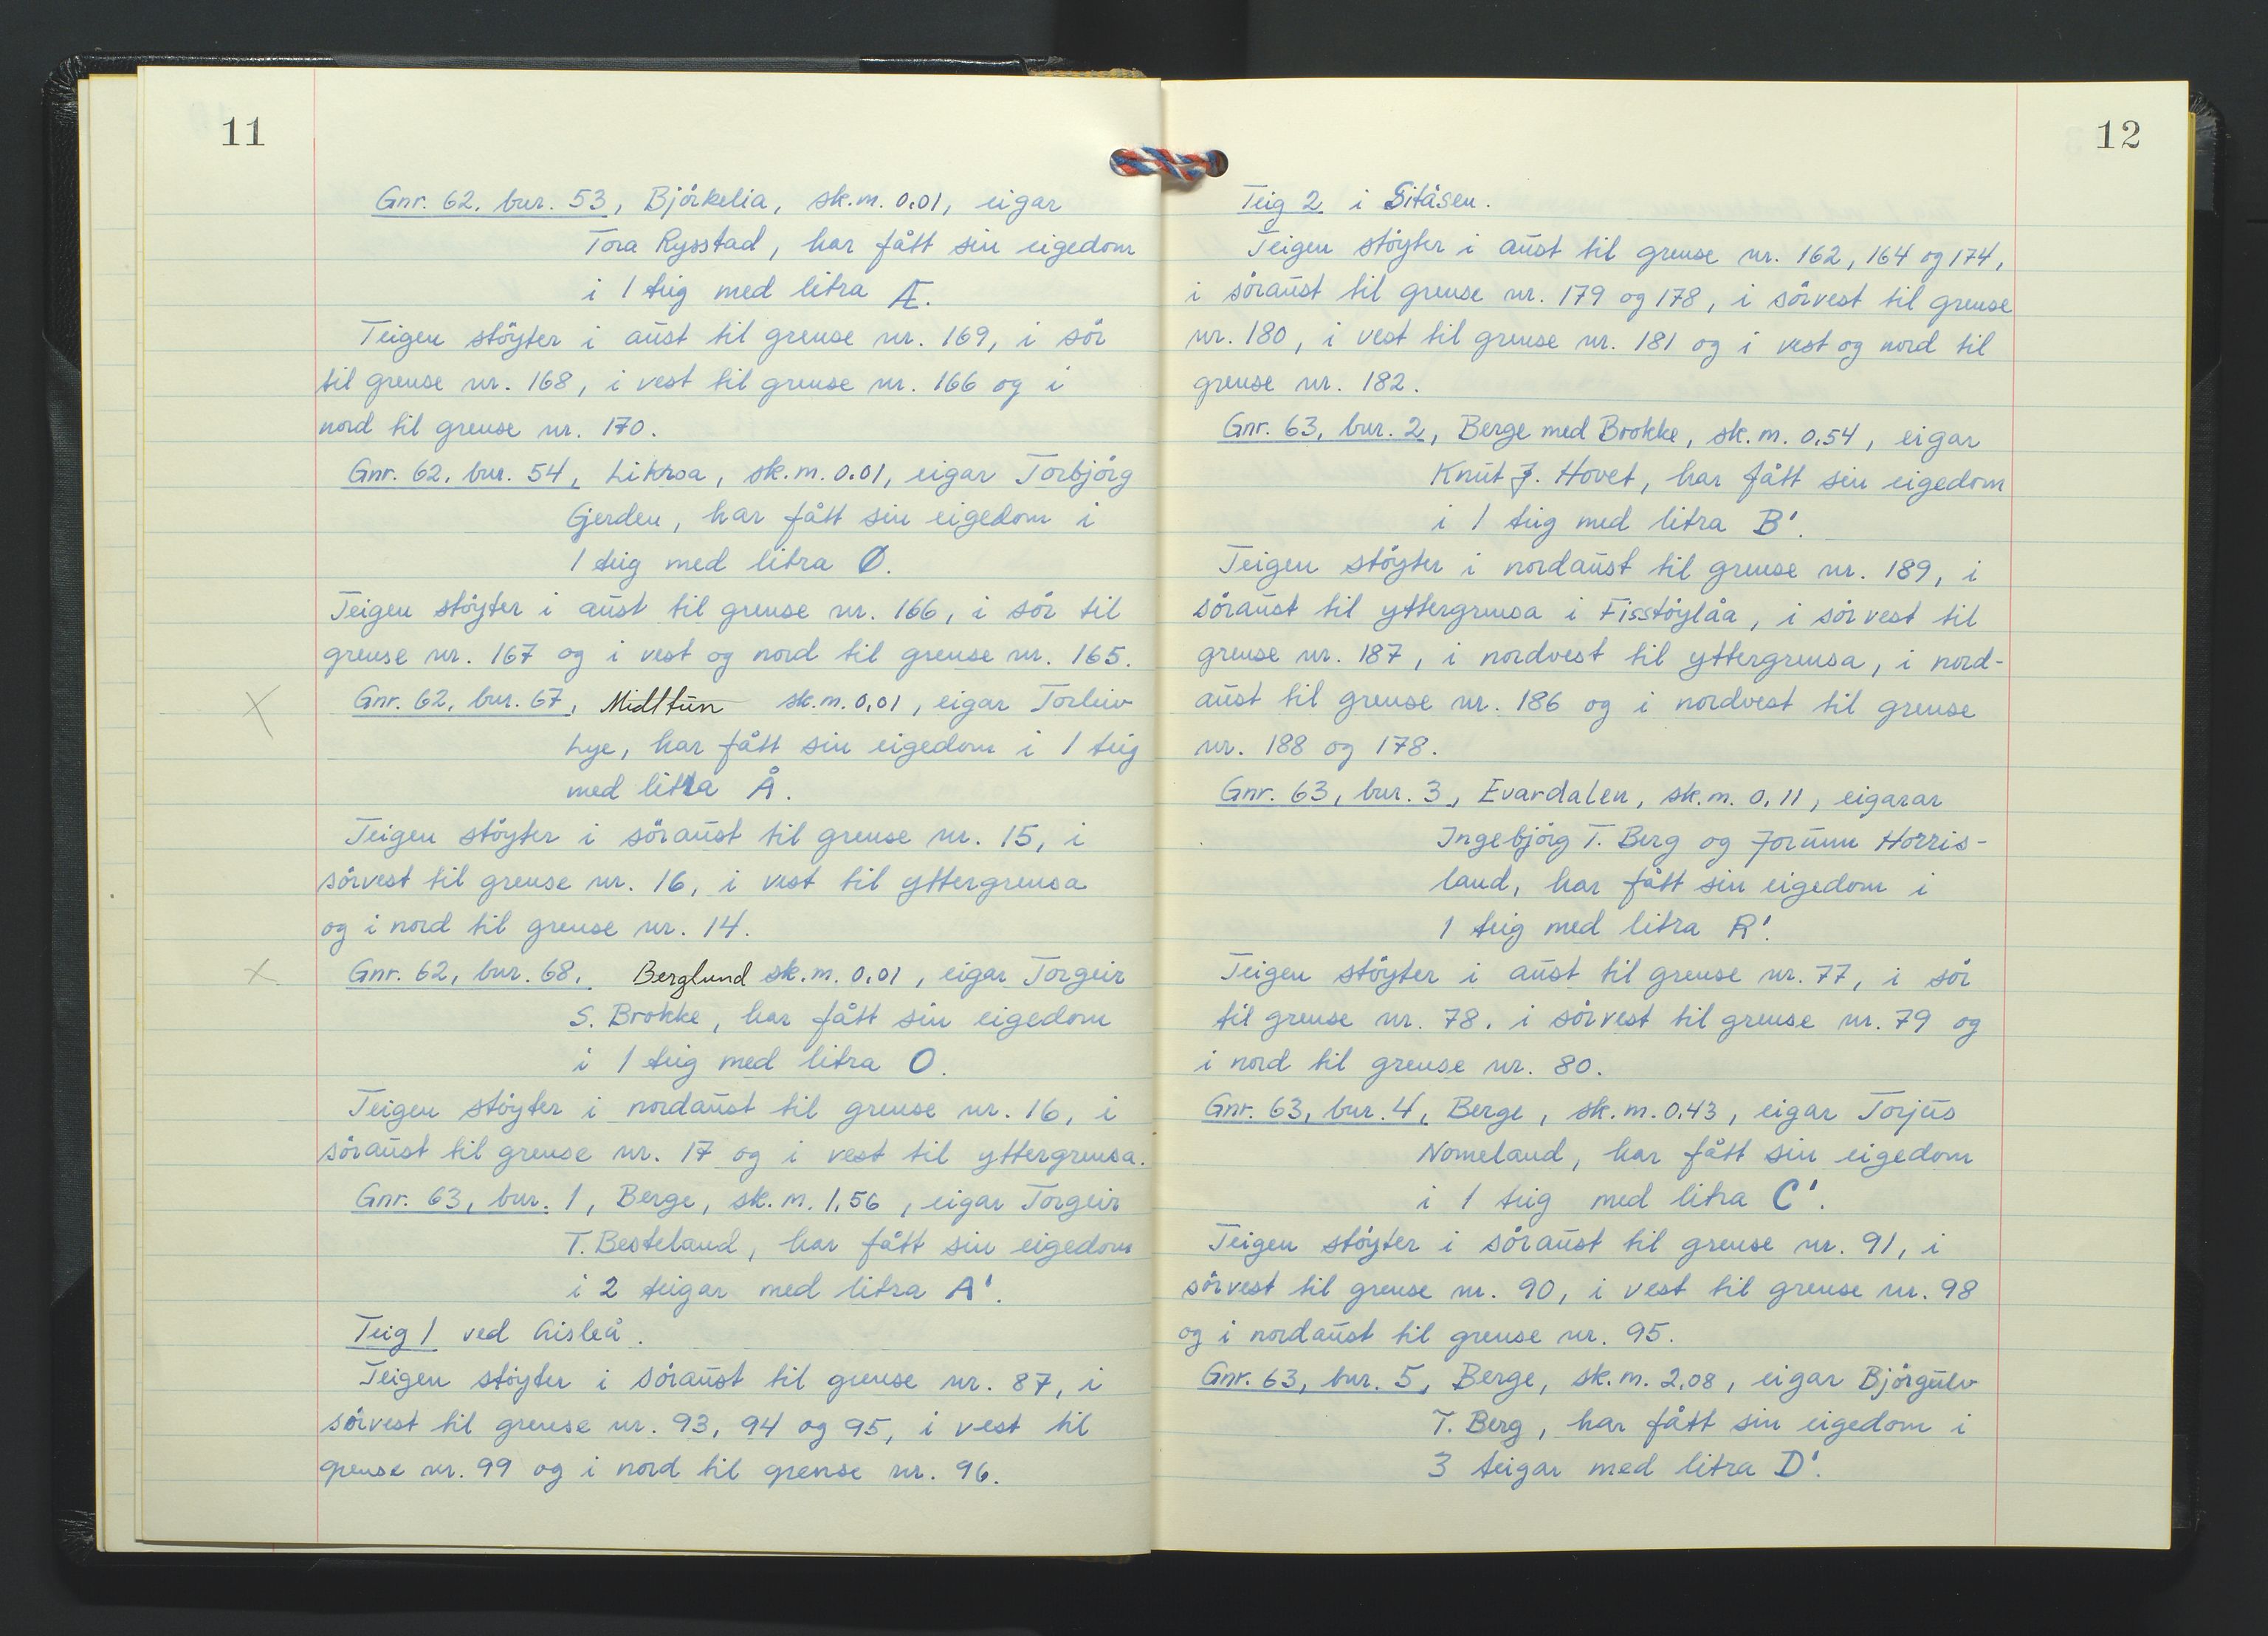 11
Gnr. 62, bnr. 53, Björkelia, sk.m. 0.01, eigar
Tora Rysstad, har fått sin eigedom
i 1 teig med litra Æ.
Teigen stöyter i aust til grense nr. 169, i sör
til grense nr. 168, i vest til grense nr. 166 og i
nord til grense nr. 170.
Gnr. 62, bnr. 54, Likroa, sk.m. 0.01, eigar Torbjörg
Gjerden, har fått sin eigedom i
1 teig med litra Ø.
Teigen stöyter i aust til grense nr. 166, i sör til
grense nr. 167 og i vest og nord til grense nr. 165.
X Gnr. 62, bnr. 67, Midttun sk.m. 0,01, eigar Torleiv
Lye, har fått sin eigedom i 1 teig
med litra Å.
Teigen stöyter i söraust til grense nr. 15, i
sörvest til grense nr. 16, i vest til yttergrensa
og i nord til grense nr. 14.
X Gnr. 62, bnr. 68, Berglund sk.m. 0,01, eigar Torgeir
S. Brokke, har fått sin eigedom
i 1 teig med litra O.
Teigen stöyter i nordaust til grense nr. 16, i
söraust til grense nr. 17 og i vest til yttergrensa.
Gnr. 63, bnr. 1, Berge, sk.m. 1,56, eigar Torgeir
T. Besteland, har fått sin eigedom
i 2 teigar med litra A'.
Teig 1 ved
Teigen stöyter i söraust til grense nr. 87, i
sörvest til grense nr. 93, 94 og 95, i vest til
grense nr. 99 og i nord til grense nr. 96.
12
Teig 2 i
Teigen stöyter i aust til grense nr. 162, 164 og 174,
i söraust til grense nr. 179 og 178, i sörvest til grense
nr. 180, i vest til grense nr. 181 og i vest og nord til
grense nr. 182.
Gnr. 63, bnr. 2, Berge med Brokke, sk.m. 0,54, eigar
Knut J. Hovet, har fått sin eigedom
i 1 teig med litra B'.
Teigen stöyter i nordaust til grense nr. 189, i
söraust til yttergrensa i Fisstöylåa, i sörvest til
grense nr. 187, i nordvest til yttergrensa, i nord-
aust til grense nr. 186 og i nordvest til grense
nr. 188 og 178.
Gnr. 63, bnr. 3, Evardalen, sk.m. 0,11, eigarar
Ingebjörg T. Berg og Jorunn Horris-
land, har fått sin eigedom i
1 teig med litra R'.
Teigen stöyter i aust til grense nr. 77, i sör
til grense nr. 78, i sörvest til grense nr. 79 og
i nord til grense nr. 80.
Gnr. 63, bnr. 4, Berge, sk.m. 0,43, eigar Torjus
Nomeland, har fått sin eigedom
i 1 teig med litra C'.
Teigen stöyter i söraust til grense nr. 91, i
sörvest til grense nr. 90, i vest til grense nr. 98
og i nordaust til grense nr. 95.
Gnr. 63, bnr. 5, Berge, sk.m. 2,08, eigar Björgulv
T. Berg, har fått sin eigedom i
3 teigar med litra D'.